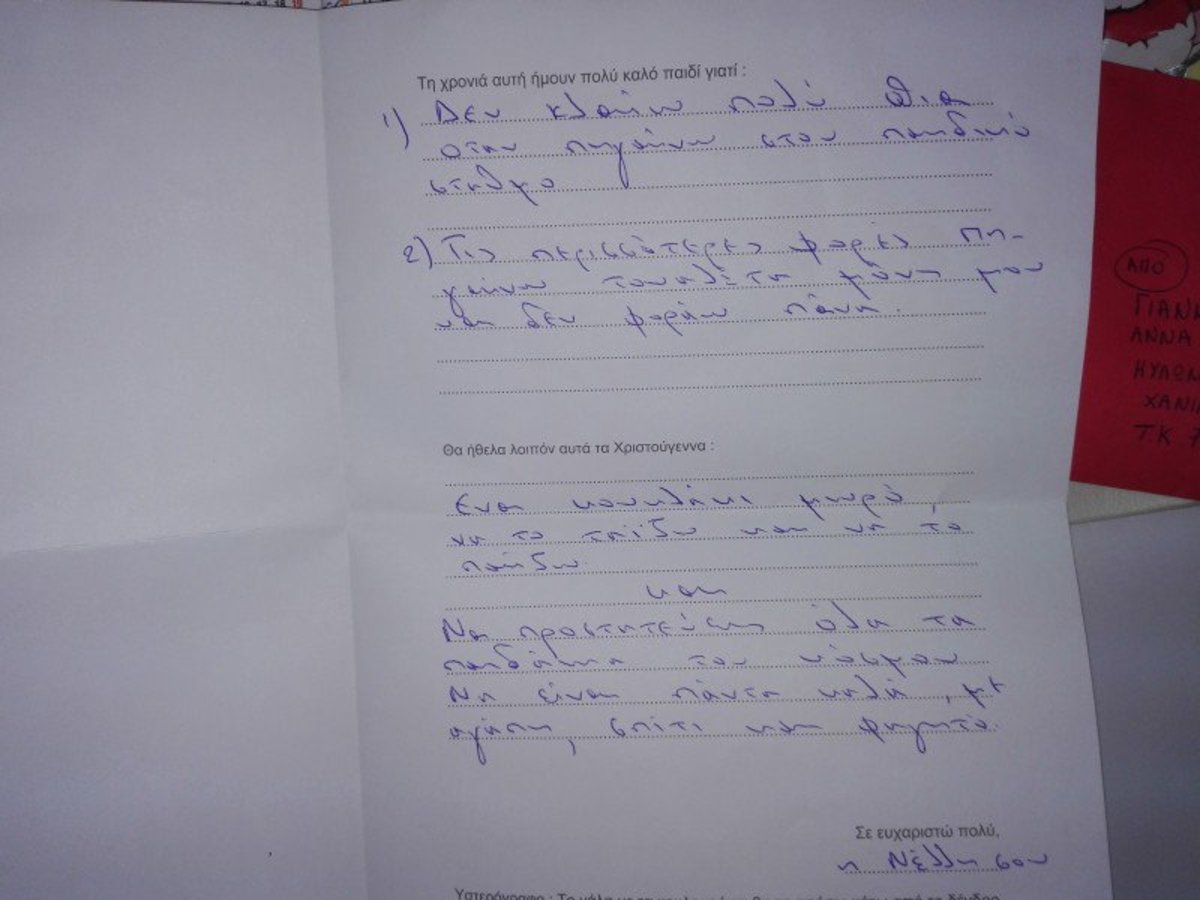 Τη χρονιά αυτή ήμουν πολύ καλό παιδί γιατί :
1) Δεν κλαίω πολύ πια
οταν πηγαίνω στον παιδικό
σταθμο
2) Τις περισσότερες φορές πη-
γαίνω τουαλέτα μόνη μου
και δεν φοράω πάνα.
Θα ήθελα λοιπόν αυτά τα Χριστούγεννα :
Ενα κουκλάκι μωρό,
να το ταϊζω και να το
παίζω.
και
Να προστατεύεις όλα τα
παιδάκια του κόσμου
Να είναι πάντα καλά, με
αγάπη, σπίτι και φαγητό.
Σε ευχαριστώ πολύ,
η Νέλλη σου
Υστερόγραφο :
ΑΠΟ
ΓΙΑΝΝ
ΑΝΝΑ
ΚΥΔΩΝ
ΧΑΝΙ
ΤΚ 7